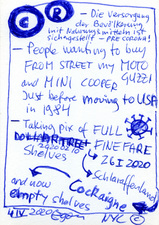 C R - Die Versorgung
der Bevölkerung
mit Nahrungsmitteln ist
sichergestellt - PRE CORONA!
- People wanting to buy
FROM STREET my MOTO
GUZZI
and MINI COOPER
Just before moving to USA
in 1984
- Taking pix of FULL
shelves
FINEFARE
26 I 2020
Schlaraffenland
Cockaigne
and now
empty shelves
4 IV 2020
NYC ©